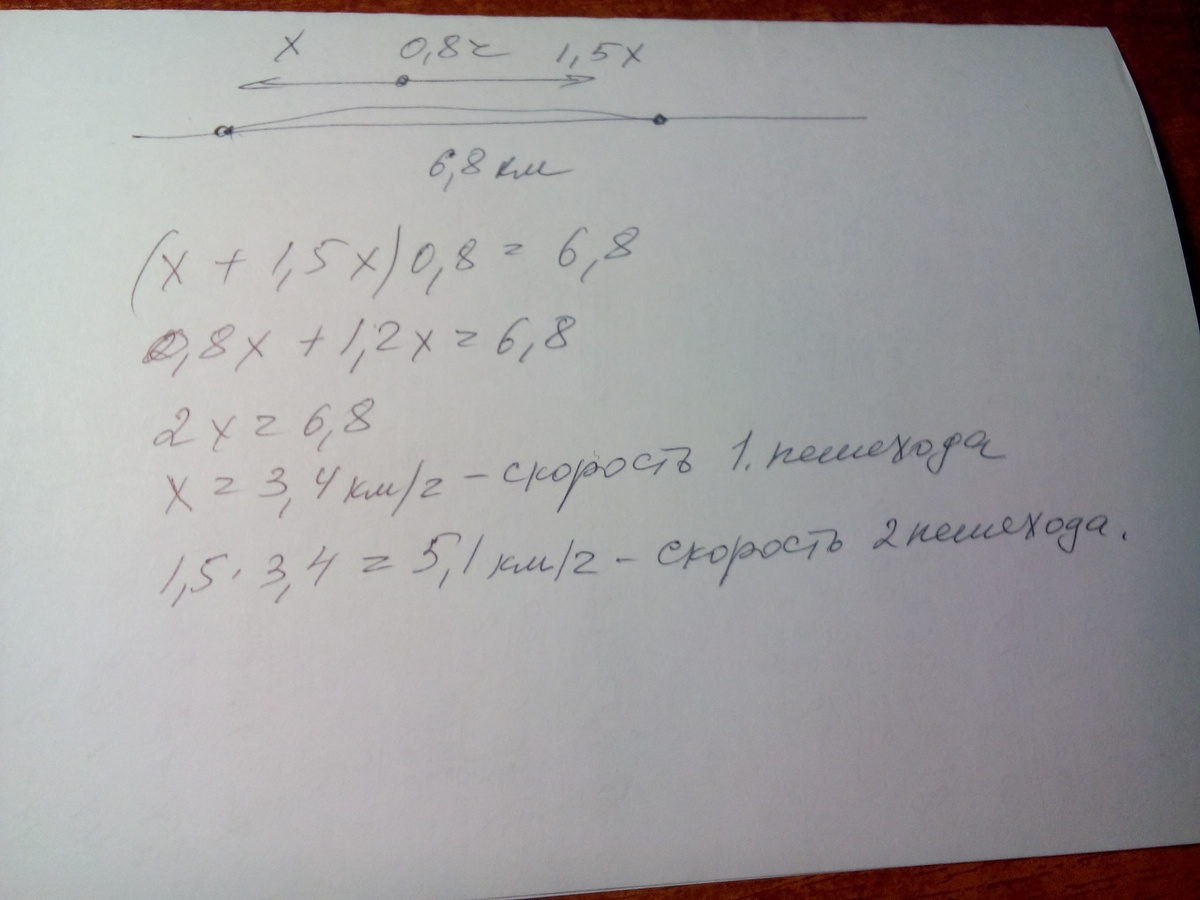 x 0,8ч 1,5x
6,8 км
(x + 1,5x)0,8 = 6,8
0,8x + 1,2x = 6,8
2x = 6,8
x = 3,4 км/ч - скорость 1. пешехода
1,5 · 3,4 = 5,1 км/ч - скорость 2 пешехода.